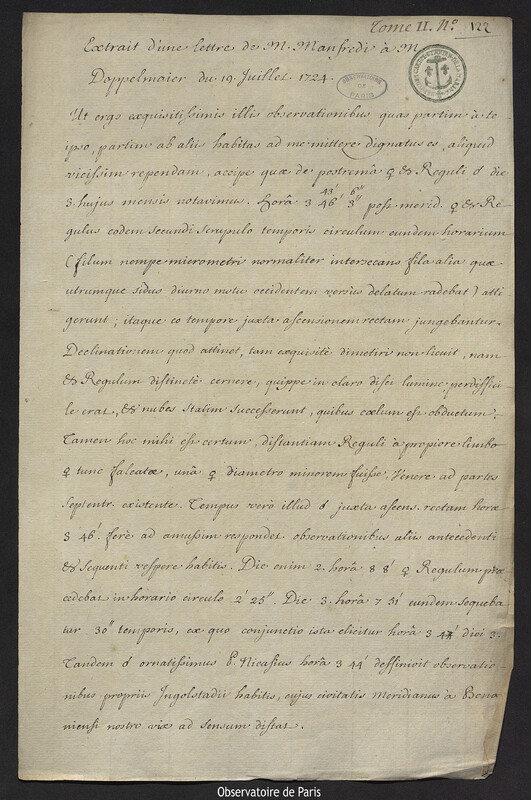 Tome II. N.° 122
Extrait d'une lettre de M. Manfredi à M.
Doppelmaier du 19. Juillet 1724.
OBSERVATOIRE DE PARIS
Ut ergo exquisitissimis illis observationibus quas partim à te
ipso, partim ab aliis habitas ad me mittere dignatus es, aliquid
vicissim rependam, accipe quæ de postremâ ♀ & Reguli ☌ die
3. hujus mensis notavimus. Horâ 3 46' 3'' post merid. ♀ & Re
43' 6''
gulus eodem secundi scrupulo temporis circulum eundem horarium
(filum nempe micrometri normaliter intersecans fila alia quæ
utrumque sidus diurno motu occidentem versus delatum radebat) atti
gerunt; itaque eo tempore juxta ascensionem rectam jungebantur.
Declinationem quod attinet, tam exquisitè dimetiri non licuit, nam
& Regulum distinctè cernere, quippe in claro disci lumine perdiffici
le erat, & nubes statim successerunt, quibus cœlum est obductum.
Tamen hoc mihi est certum, distantiam Reguli à propiore limbo
♀ tunc falcatæ, unâ ♀ diametro minorem fuisse, Venere ad partes
septentr. existente. Tempus verò illud ☌ juxta ascens. rectam horæ
3 46'. ferè ad amussim respondet observationibus aliis antecedenti
& sequenti vespere habitis. Die enim 2. horâ 8 8' ♀ Regulum præ
cedebat in horario circulo 2' 25''. Die 3. horâ 7 51' eundem sequeba
tur 30'' temporis, ex quo conjunctio ista elicitur horâ 3 diei 3.
Tandem ☌ ornatissimus P. Nicasius horâ 3 44' deffinivit observatio-
nibus propriis Ingolstadii habitis, cujus civitatis meridianus à Bono
niensi nostro vix ad sensum distat.
Observatoire de Paris